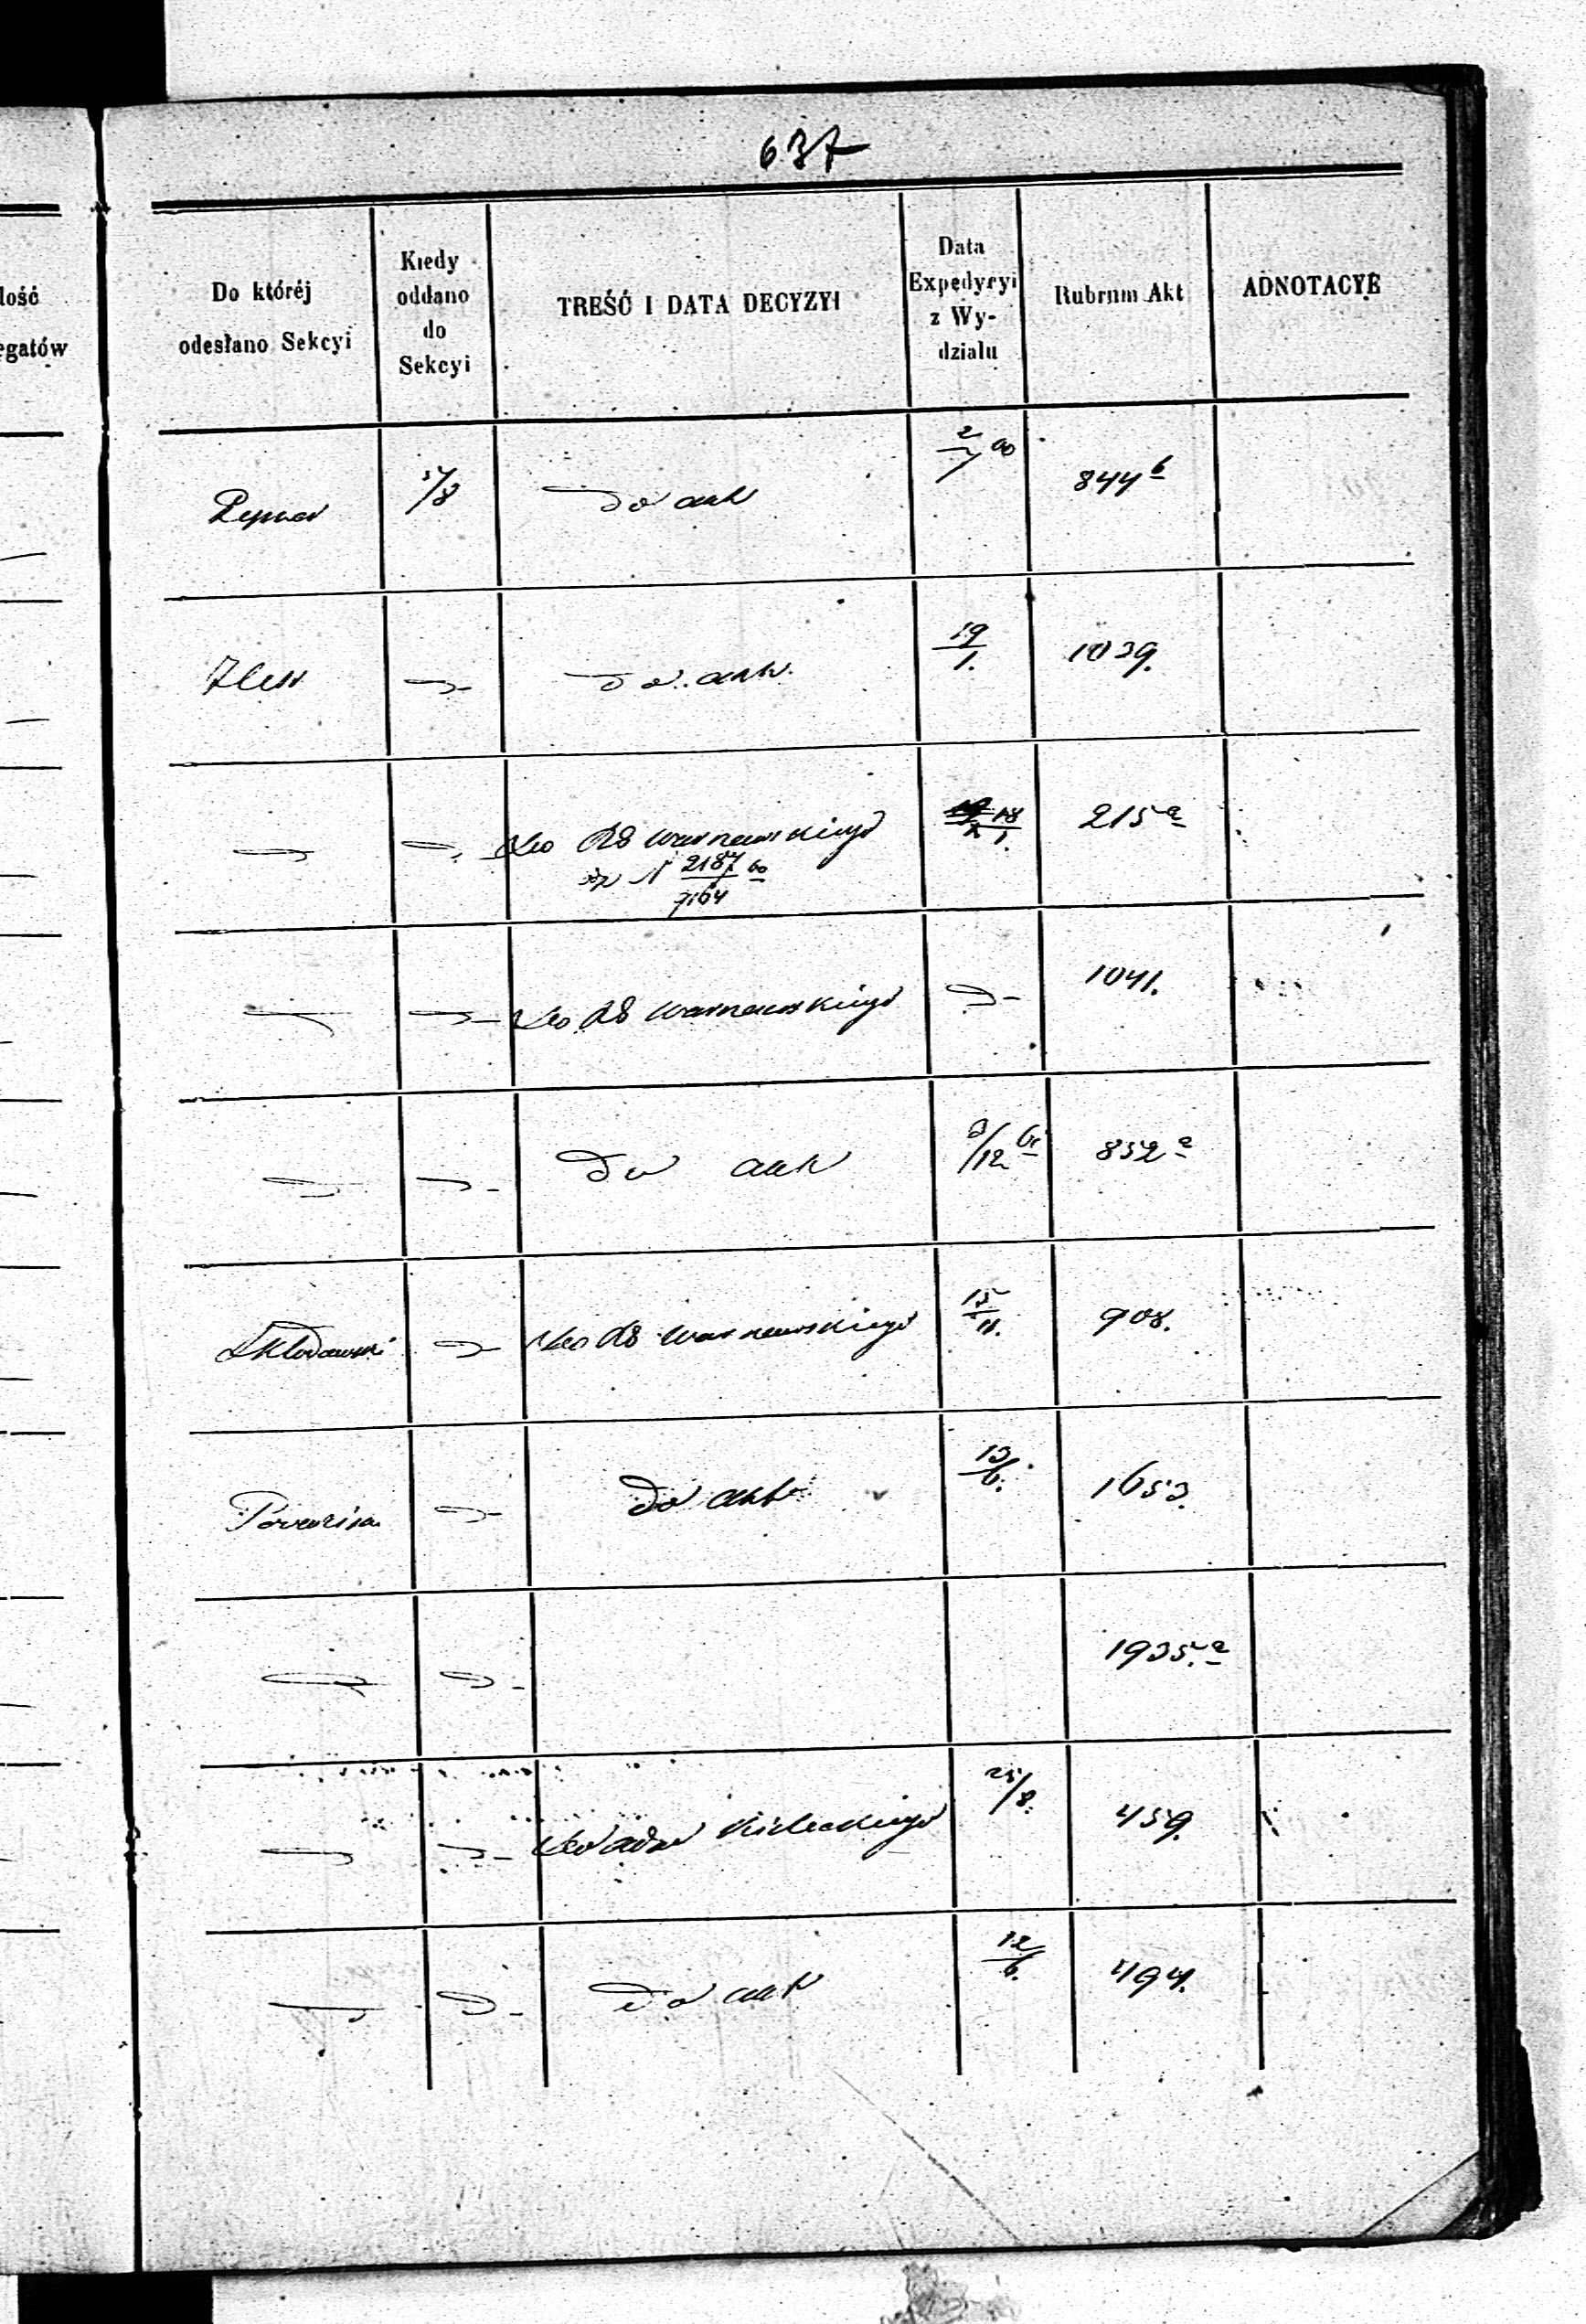 637
lość
egatów
Do któréj
odesłano Sekcyi
Kiedy
oddano
do
Sekcyi
TREŚĆ I DATA DECYZYI
Data
Expedycyi
z Wy-
działu
Rubrum Akt
ADNOTACYE
do akt
844 b
do akt
19/1.
1039.
Do RG Warszawskiego
N 2187/9164
18/1.
215 a
Do RG Warszawskiego
1041.
do akt
3/12 61
852 a
Skłodowski
Do RG Warszawskiego
15/11.
908.
do akt
13/6.
1653.
1935. a
Kieleckiego
25/8.
459.
do akt
12/6.
494.